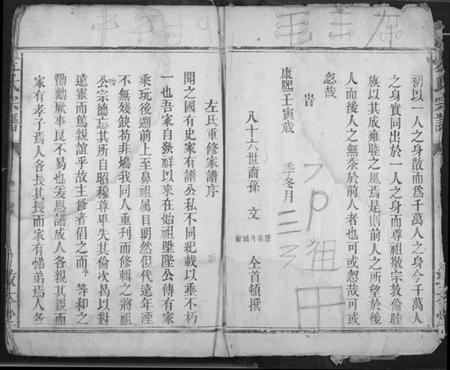 初以一人之身散而為千萬人之身今千萬人
之身實同出於一人之身而尊祖敬宗敦倫睦
族以其成雍睦之風焉是則前人之所望於後
人而後人之無忝於前人者也可或忽哉可或
忽哉
旹
康熙壬寅歲 季冬月
八十六世裔孫 文 仝首頓撰
左氏重修家譜序
聞之國有史家有譜公私不同紀載以垂不朽
一也吾家自發祥以來在始祖墜公傳有家
乘玩後邇前上至鼻祖屬目明然但代遠年湮
不無殘缺苟非鳩我同人重刊而修輯之將祖
公宗德忘其所自昭穆尊卑失其倫次曷以對
遠竁而篤親誼乎故主修者倡之而等和之
勷勷厥事良不易也爰思譜成人各親其親而
家有孝子焉人各長其長而家有悌弟焉人各
左氏宗譜
毛主席